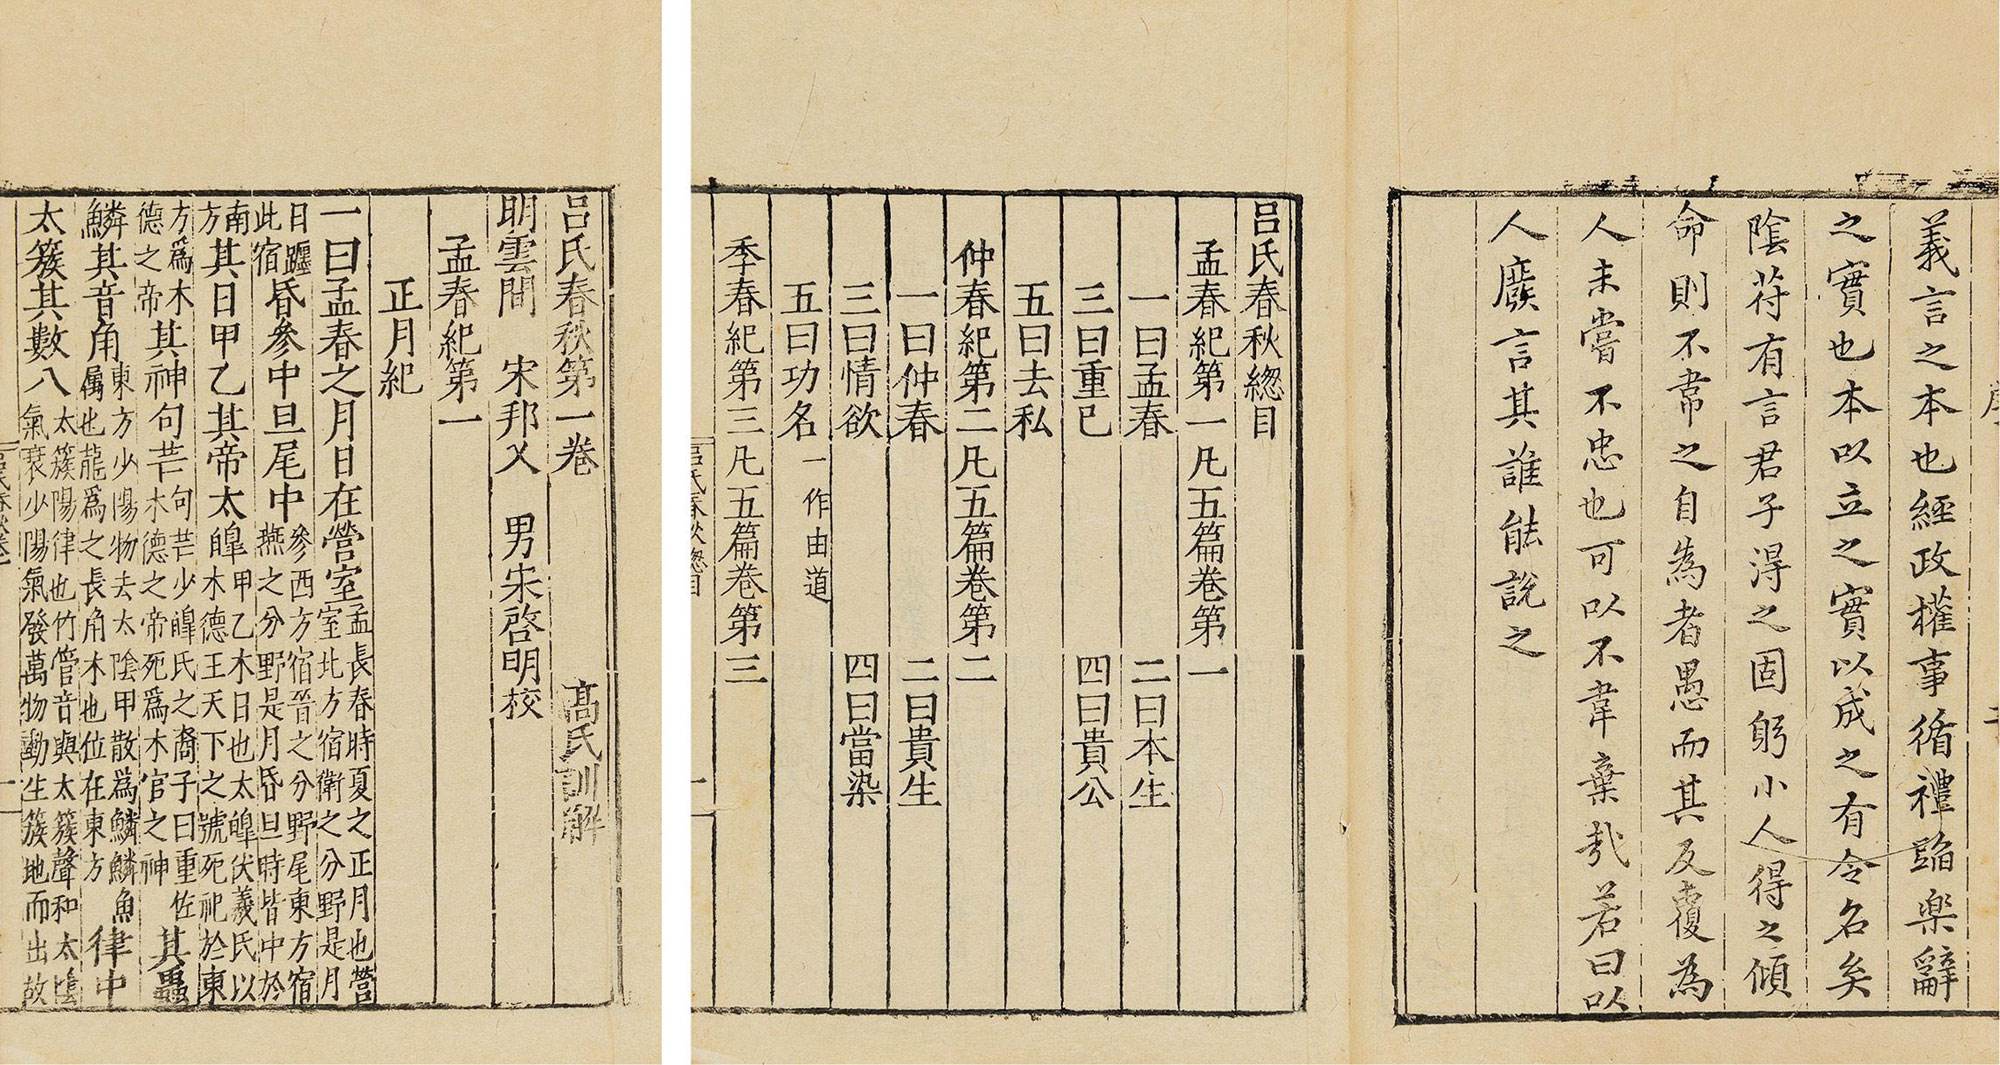 義言之本也經政權事循禮蹈樂辭
之實也本以立之實以成之有令名矣
陰苻有言君子淂之固躬小人得之傾
命則不韋之自為者愚而其反覆為
人未嘗不忠也可以不韋棄㢤若曰以
人廢言其誰能說之
呂氏春秋緫目
孟春紀第一凡五篇卷第一
一曰孟春 二曰本生
三曰重已 四曰貴公
五曰去私
仲春紀第二凡五篇卷第二
一曰仲春 二曰貴生
三曰情欲 四曰當染
五曰功名 一作由道
季春紀第三凡五篇卷第三
呂氏春秋緫目 一
呂氏春秋第一卷 高氏訓解
明雲間 宋邦乂 男宋啓明校
孟春紀第一
正月紀
一曰孟春之月日在營室孟長春時夏之正月也營室北方宿衛之分野是月
日躔此宿昏參中旦尾中參西方宿晉之分野尾東方宿燕之分野是月昏旦時皆中於
南方其日甲乙其帝太皥甲乙木日也太皥伏羲氏以木德王天下之號死祀於東
方爲木德之帝其神句芒句芒少皥氏之裔子曰重佐木德之帝死爲木官之神其蟲
鱗其音角東方少陽物去太陰甲散爲鱗鱗魚屬也龍爲之長角木也位在東方律中
太簇其數八太簇陽律也竹管音與太簇聲和太陰氣衰少陽氣發萬物動生簇地而出故